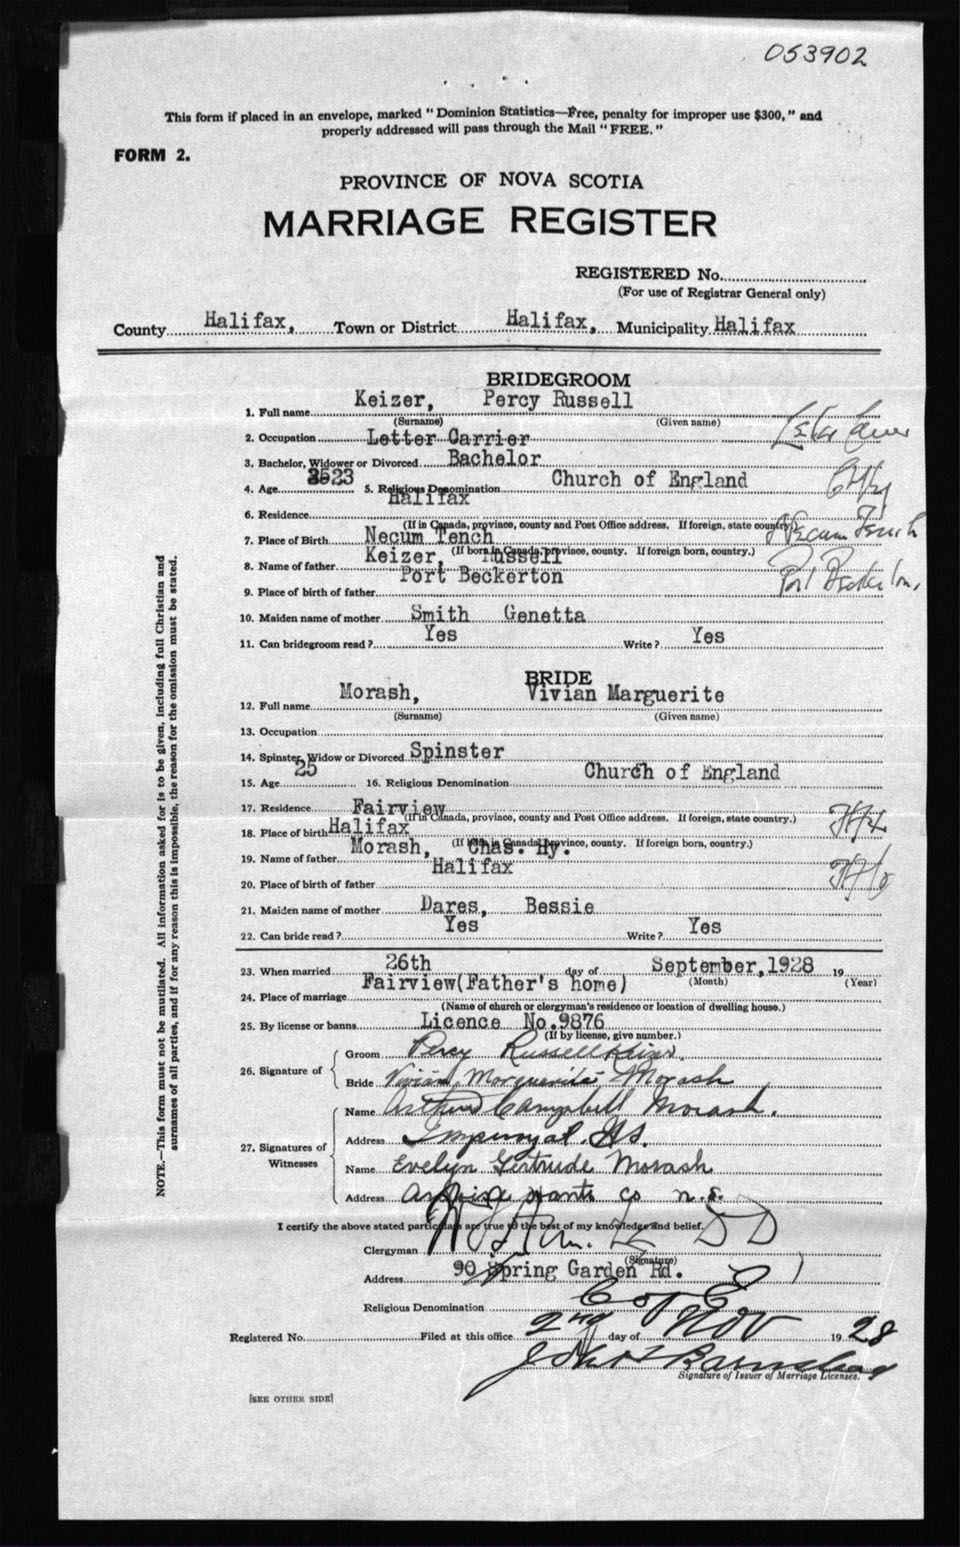 053902
This form if placed in an envelope, marked "Dominion Statistics—Free, penalty for improper use $300," and
properly addressed will pass through the Mail "FREE."
FORM 2.
PROVINCE OF NOVA SCOTIA
MARRIAGE REGISTER
REGISTERED No.
(For use of Registrar General only)
County Halifax, Town or District Halifax, Municipality Halifax
BRIDEGROOM
1. Full name Keizer, Percy Russell
(Surname) (Given name)
2. Occupation Letter Carrier
3. Bachelor, Widower or Divorced Bachelor
4. Age 23 5. Religious Denomination Church of England
6. Residence Halifax
(If in Canada, province, county and Post Office address. If foreign, state country.)
7. Place of Birth Necum Tench Necum Teuch
(If born in Canada, province, county. If foreign born, country.)
8. Name of father Keizer, Russell
9. Place of birth of father Port Beckerton Port Beckerton,
10. Maiden name of mother Smith Genetta
11. Can bridegroom read? Yes Write? Yes
BRIDE
12. Full name Morash, Vivian Marguerite
(Surname) (Given name)
13. Occupation
14. Spinster, Widow or Divorced Spinster
15. Age 25 16. Religious Denomination Church of England
17. Residence Fairview
(If in Canada, province, county and Post Office address. If foreign, state country.)
18. Place of birth Halifax Hfx
(If born in Canada, province, county. If foreign born, country.)
19. Name of father Morash, Chas. Hy.
20. Place of birth of father Halifax Hfx
21. Maiden name of mother Dares, Bessie
22. Can bride read? Yes Write? Yes
23. When married 26th day of September, 1928 19
(Month) (Year)
24. Place of marriage Fairview(Father's home)
(Name of church or clergyman's residence or location of dwelling house.)
25. By license or banns Licence No.9876
(If by license, give number.)
26. Signature of
Groom Percy Russell Keizer.
Bride Vivian Marguerite Morash
27. Signatures of Witnesses
Name Arthur Campbell Morash.
Address Imperoyal. Hs.
Name Evelyn Gertrude Morash
Address Hants Co N.S.
I certify the above stated particulars are true to the best of my knowledge and belief.
Clergyman DD
(Signature)
Address 90 Spring Garden Rd.
Religious Denomination C of E
Registered No. Filed at this office 2nd day of Nov 19 28
John
Signature of Issuer of Marriage Licenses.
[SEE OTHER SIDE]
NOTE.—This form must not be mutilated. All information asked for is to be given, including full Christian and
surnames of all parties, and if for any reason this is impossible, the reason for the omission must be stated.